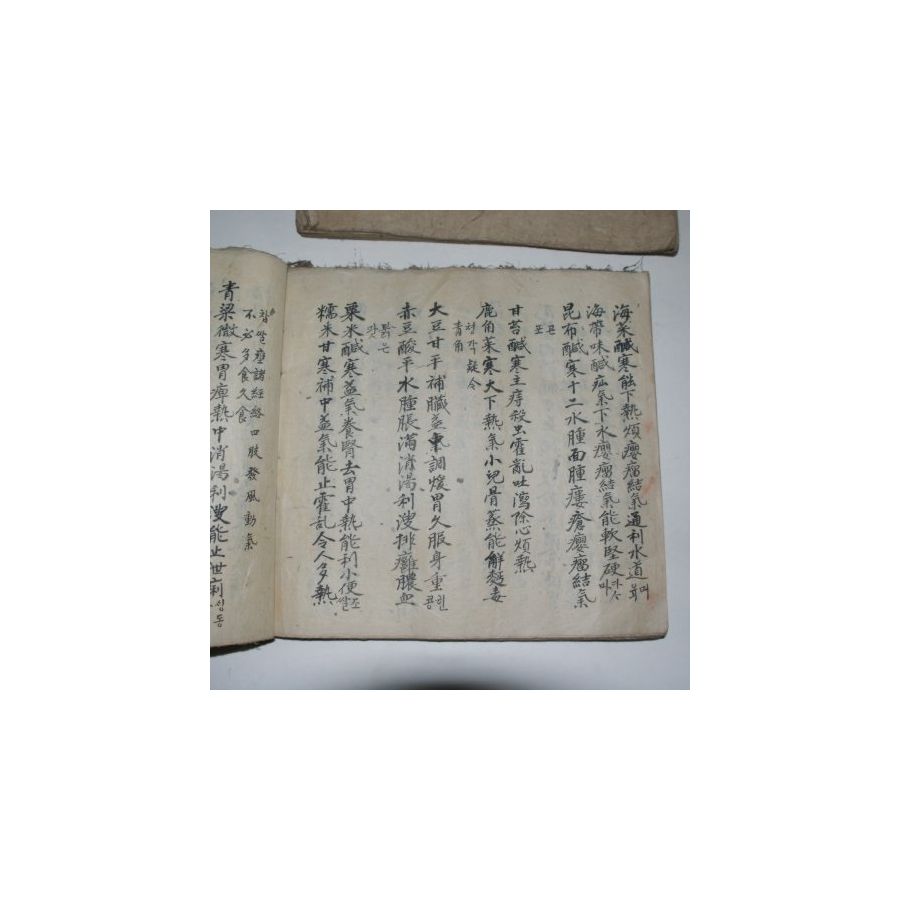 海菜醎寒能下熱煩癭瘤結氣通利水道 머육
海帶味醎疝氣下水癭瘤結氣能軟堅硬 다스마
昆布醎寒十二水腫面腫瘻瘡癭瘤結氣
곤포
甘苔醎寒主痔殺虫霍亂吐瀉除心煩熱
鹿角菜寒大下熱氣小兒骨蒸能解麵毒
청각 疑今
青角
大豆甘平補臟益氣調煖胃久服身重 흰콩
赤豆酸平水腫脹滿消渴利溲排癰膿血
붉은
팟
粟米醎寒益氣養腎去胃中熱能利小便 조쌀
糯米甘寒補中益氣能止霍乱令人多熱
찹쌀 壅諸經絡四肢發風動氣
不必多食久食
青粱微寒胃痺熱中消渴利溲能止世痢